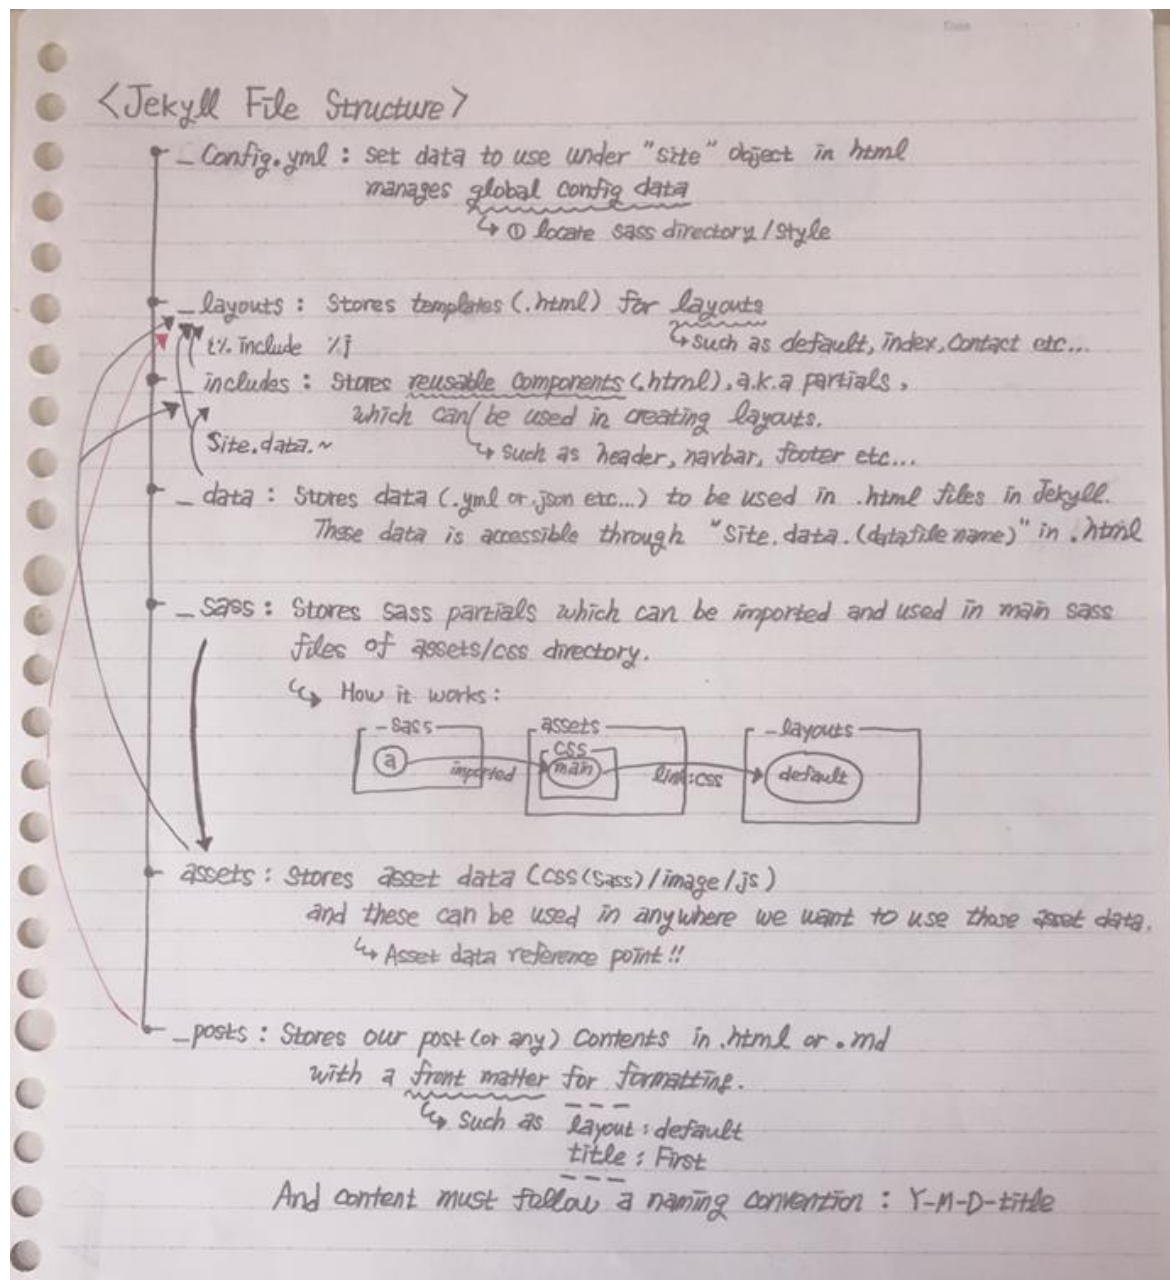 <Jekyll File Structure>
_Config.yml : set data to use under "site" object in html
manages global config data
↳ ① locate sass directory/style
_layouts : Stores templates (.html) for layouts
↳ such as default, index, contact etc...
{% include %}
_includes : Stores reusable components (.html), a.k.a partials,
which can be used in creating layouts.
↳ such as header, navbar, footer etc...
Site.data.~
_data : Stores data (.yml or .json etc...) to be used in .html files in Jekyll.
These data is accessible through "Site.data.(datafile name)" in .html
_sass : Stores sass partials which can be imported and used in main sass
files of assets/css directory.
↳ How it works :
_sass assets _layouts
css
a imported main link:css default
assets : Stores asset data (css(sass)/image/js)
and these can be used in anywhere we want to use those asset data.
↳ Asset data reference point!!
_posts : Stores our post (or any) contents in .html or .md
with a front matter for formatting.
---
↳ such as layout : default
title : First
---
And content must follow a naming convention : Y-M-D-title